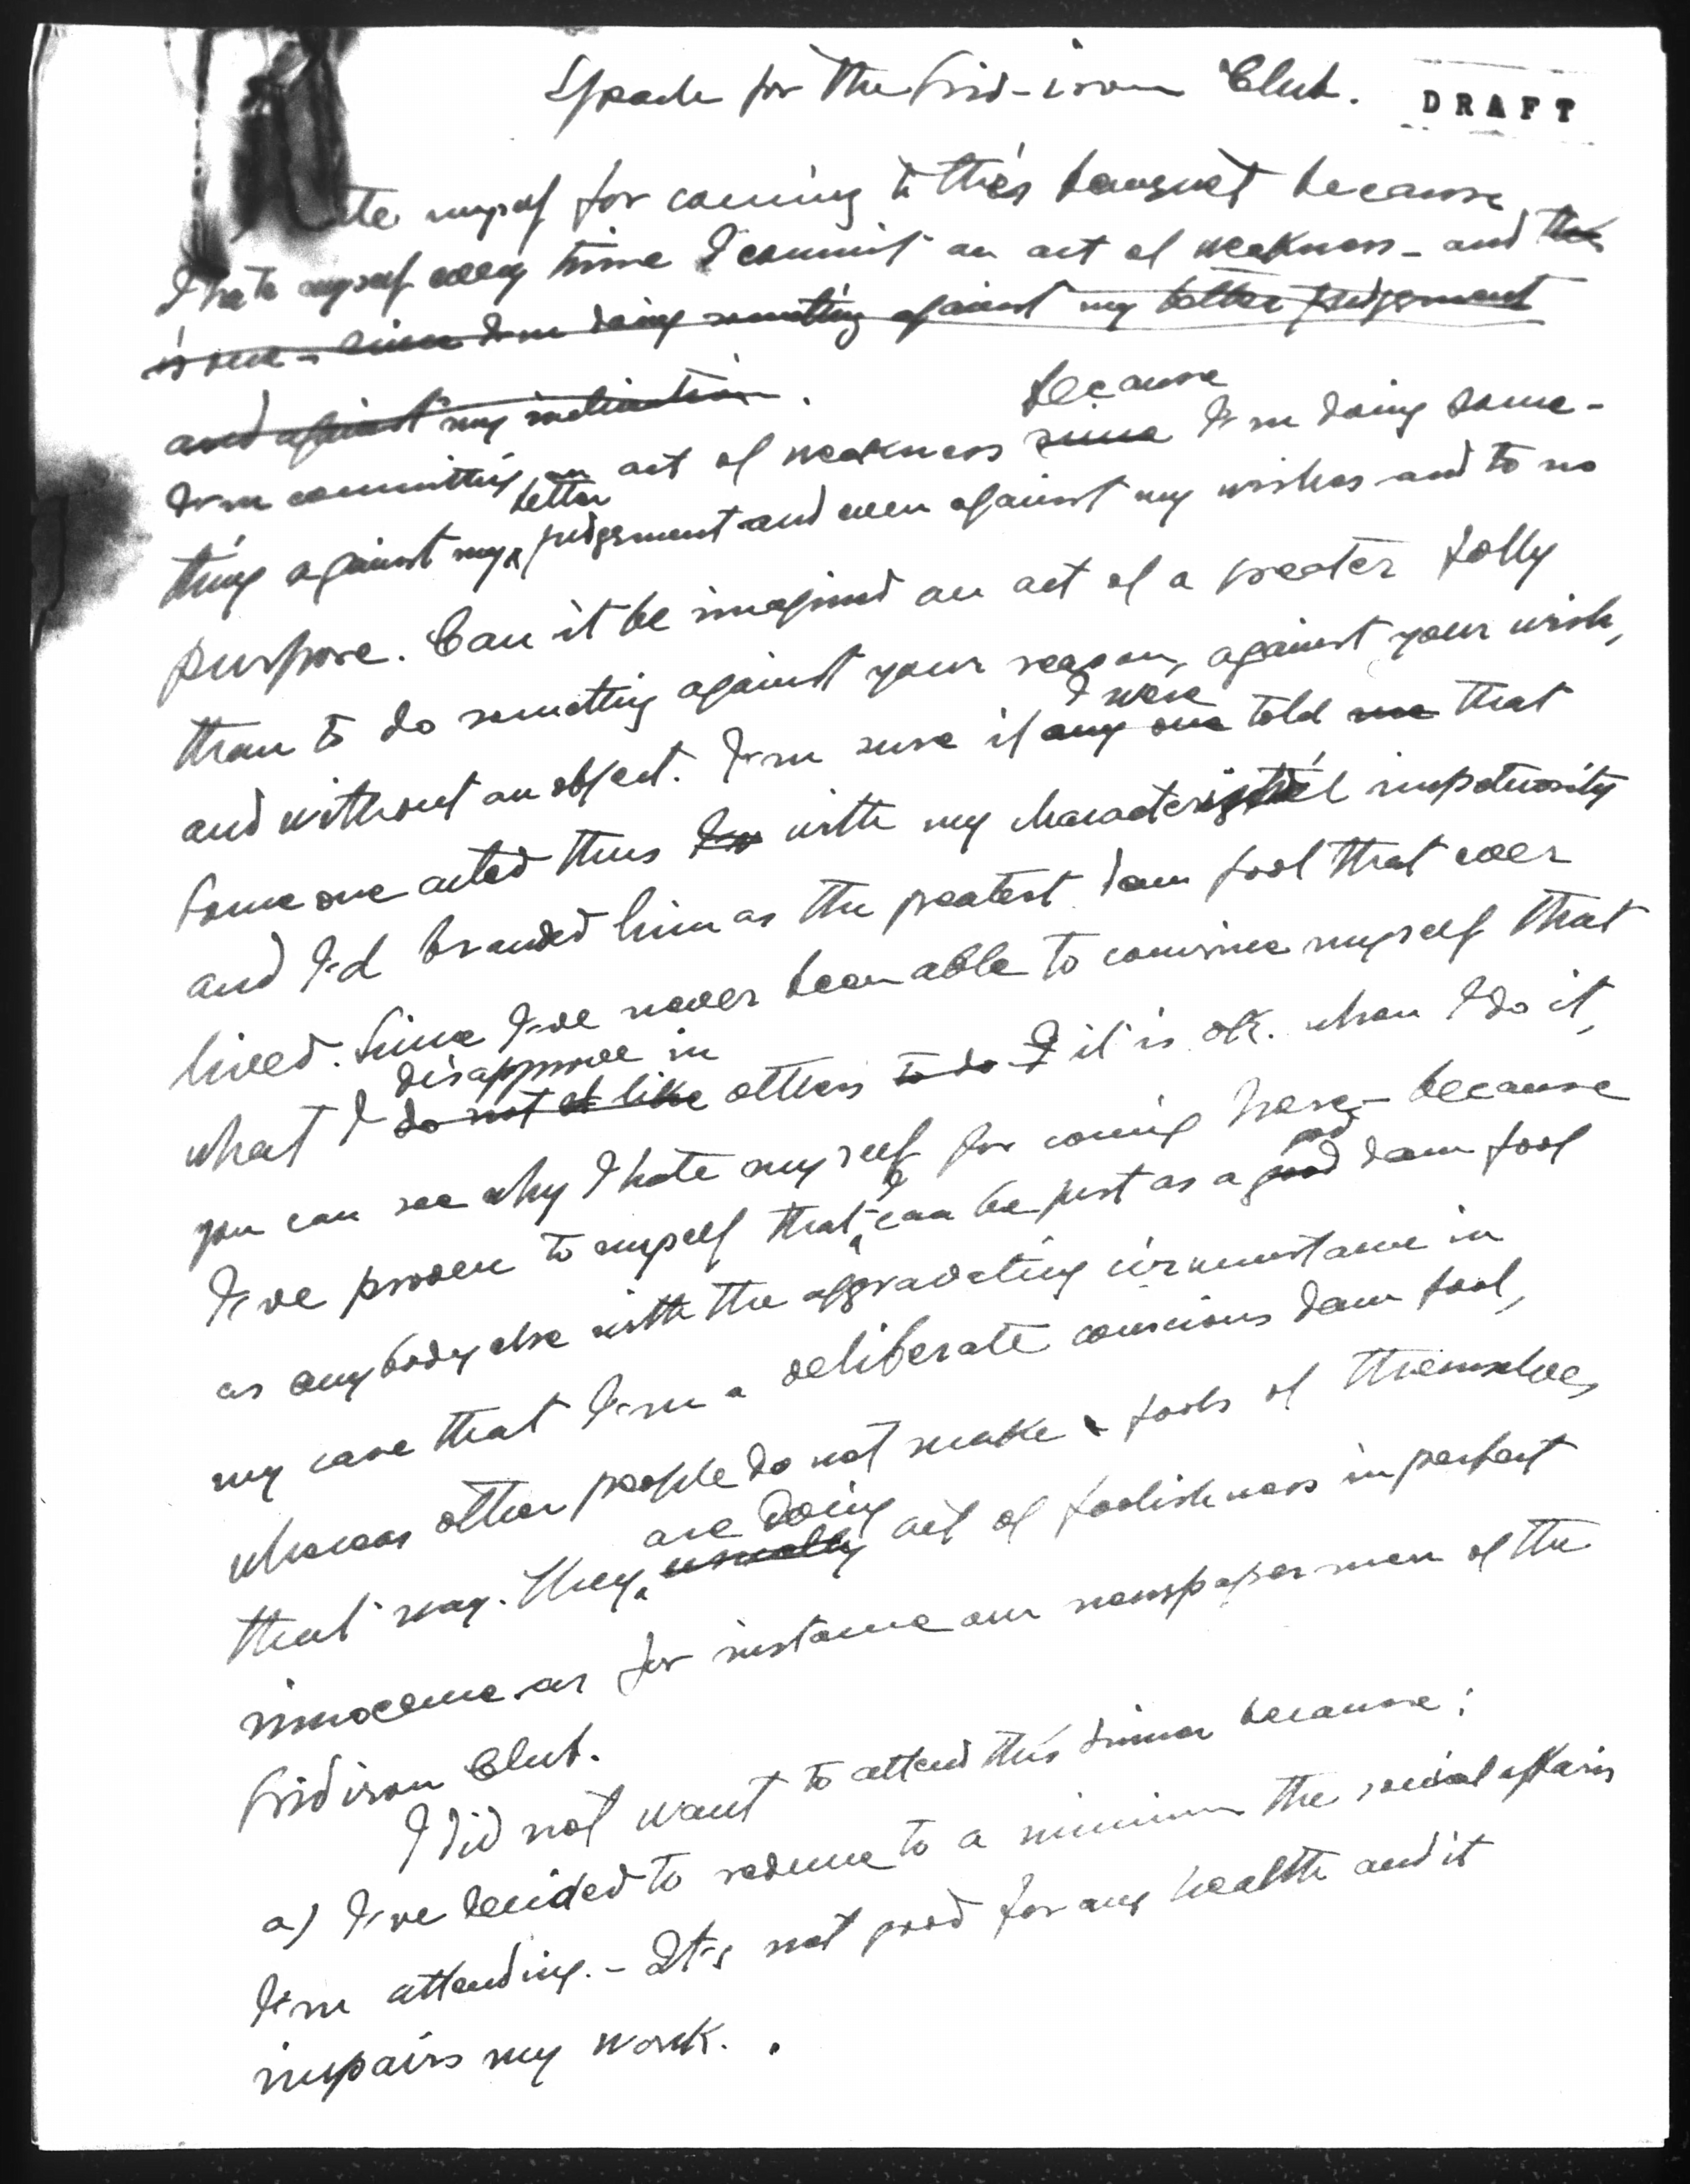 Speach for the Grid-iron Club.
DRAFT
te myself for coming to this banquet because
I hate myself every time I commit an act of weakness - and this
is one - since I'm doing something against my better judgement
and against my inclination.
I'm committing an act of weakness since because I'm doing some-
thing against my better judgement and even against my wishes and to no
purpose. Can it be imagined an act of a greater folly
than to do something against your reason, against your wish,
and without an object. I'm sure if any one I were told me that
some one acted thus I'd with my characteristical impetuosity
and I'd branded him as the greatest dam fool that ever
lived. Since I've never been able to convince myself that
what I do not like disapprove in others to do I it is ok. when I do it,
you can see why I hate myself for coming here - because
I've proven to myself that I can be just as a good god dam fool
as anybody else with the aggravating circumstance in
my case that I'm a deliberate conscious dam fool,
whereas other people do not make fools of themselves
that way. They usually are doing act of foolishness in perfect
innocence as for instance our newspapermen of the
Gridiron Club.
I did not want to attend this dinner because:
a) I've decided to reduce to a minimum the social affairs
I'm attending. - It's not good for any health and it
impairs my work.